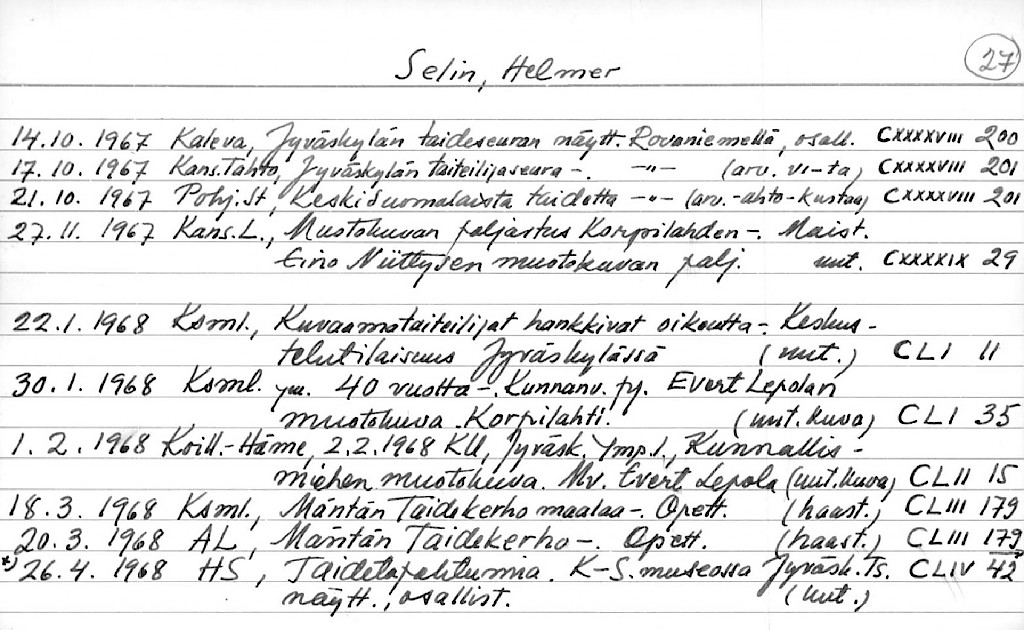 27
Selin, Helmer
14.10. 1967 Kaleva, Jyväskylän taideseuran näytt. Rovaniemellä, osall. CXXXXVIII 200
17.10. 1967 Kans.Tahto, Jyväskylän taiteilijaseura -. -"- (arv. vi-ta) CXXXXVIII 201
21.10. 1967 Pohj.St, Keskisuomalaista taidetta -"- (arv.-ahto-Kustaa) CXXXXVIII 201
27.11. 1967 Kans.L., Muotokuvan paljastus Korpilahden -. Maist.
Eino Niittysen muotokuvan palj. uut. CXXXXIX 29
22.1. 1968 Ksml., Kuvaamataiteilijat hankkivat oikeutta -. Keskus-
telutilaisuus Jyväskylässä (uut.) CLI 11
30.1. 1968 Ksml. ym. 40 vuotta -. Kunnanv. pj. Evert Lepolan
muotokuva Korpilahti. (uut.kuva) CLI 35
1.2. 1968 Koill.-Häme, 2.2.1968 KU, Jyväsk. Ymp.l., Kunnallis-
miehen muotokuva. Mv. Evert Lepola (uut.kuva) CLII 15
18.3. 1968 Ksml., Mäntän Taidekerho maalaa -. Opett. (haast.) CLIII 179
20.3. 1968 AL, Mäntän Taidekerho -. Opett. (haast.) CLIII 179
*) 26.4. 1968 HS, Taidetapahtumia. K-S. museossa Jyväsk. Ts. CLIV 42
näytt., osallist. (uut.)